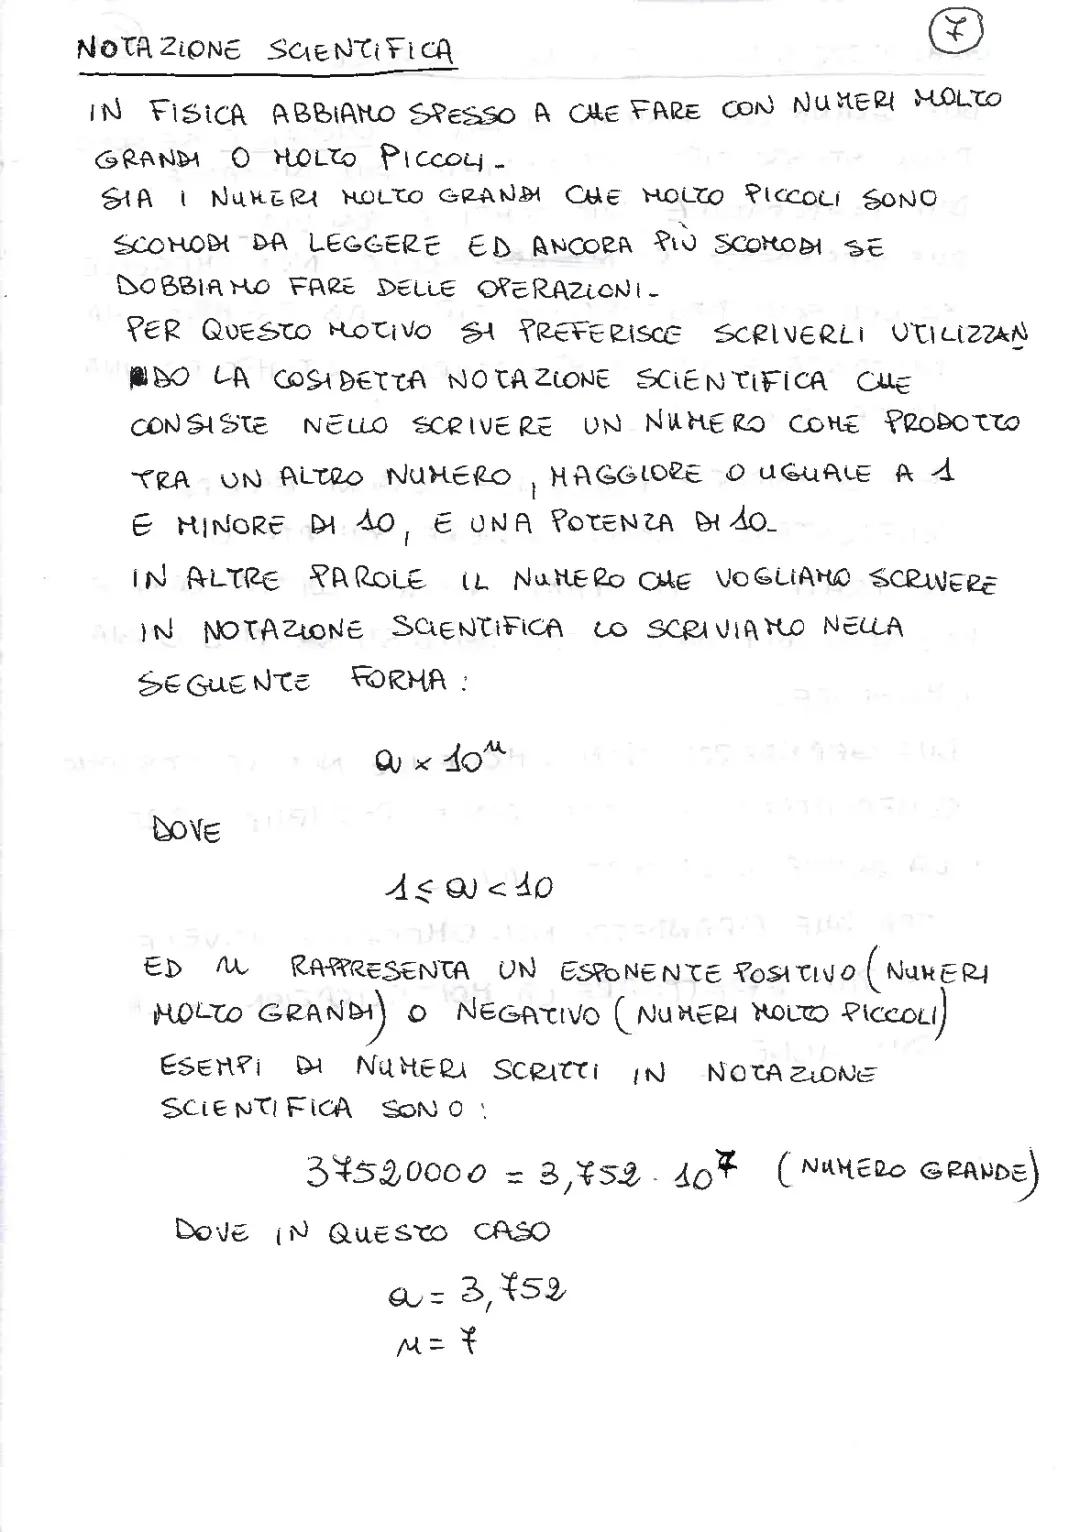 7
NOTAZIONE SCIENTIFICA
IN FISICA ABBIAMO SPESSO A CHE FARE CON NUMERI MOLTO
GRANDI O MOLTO PICCOLI.
SIA I NUMERI MOLTO GRANDI CHE MOLTO PICCOLI SONO
SCOMODI DA LEGGERE ED ANCORA PIÙ SCOMODI SE
DOBBIAMO FARE DELLE OPERAZIONI.
PER QUESTO MOTIVO SI PREFERISCE SCRIVERLI UTILIZZAN
DO LA COSIDETTA NOTAZIONE SCIENTIFICA CHE
CONSISTE NELLO SCRIVERE UN NUMERO COME PRODOTTO
TRA UN ALTRO NUMERO, MAGGIORE O UGUALE A 1
E MINORE DI 10, E UNA POTENZA DI 10.
IN ALTRE PAROLE IL NUMERO CHE VOGLIAMO SCRIVERE
IN NOTAZIONE SCIENTIFICA LO SCRIVIAMO NELLA
SEGUENTE FORMA:
a × 10ⁿ
DOVE
1 ≤ a < 10
ED n RAPPRESENTA UN ESPONENTE POSITIVO (NUMERI
MOLTO GRANDI) O NEGATIVO (NUMERI MOLTO PICCOLI)
ESEMPI DI NUMERI SCRITTI IN NOTAZIONE
SCIENTIFICA SONO:
37520000 = 3,752 · 10⁷ (NUMERO GRANDE)
DOVE IN QUESTO CASO
a = 3,752
n = 7